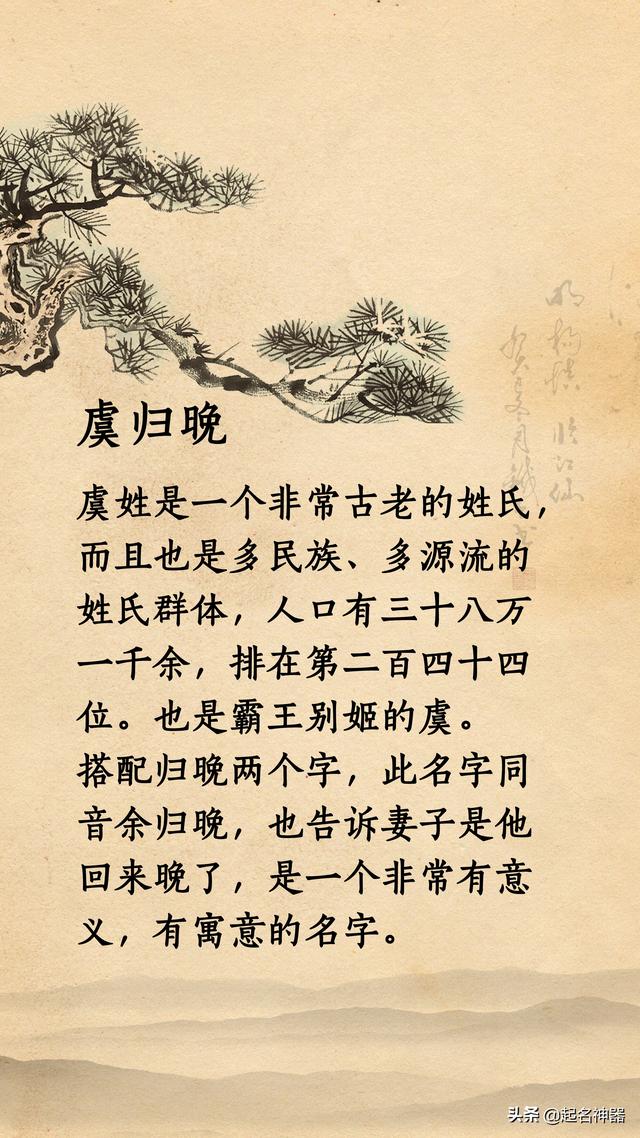 虞归晚
虞姓是一个非常古老的姓氏，
而且也是多民族、多源流的
姓氏群体，人口有三十八万
一千余，排在第二百四十四
位。也是霸王别姬的虞。
搭配归晚两个字，此名字同
音余归晚，也告诉妻子是他
回来晚了，是一个非常有意
义，有寓意的名字。
头条 @起名神器